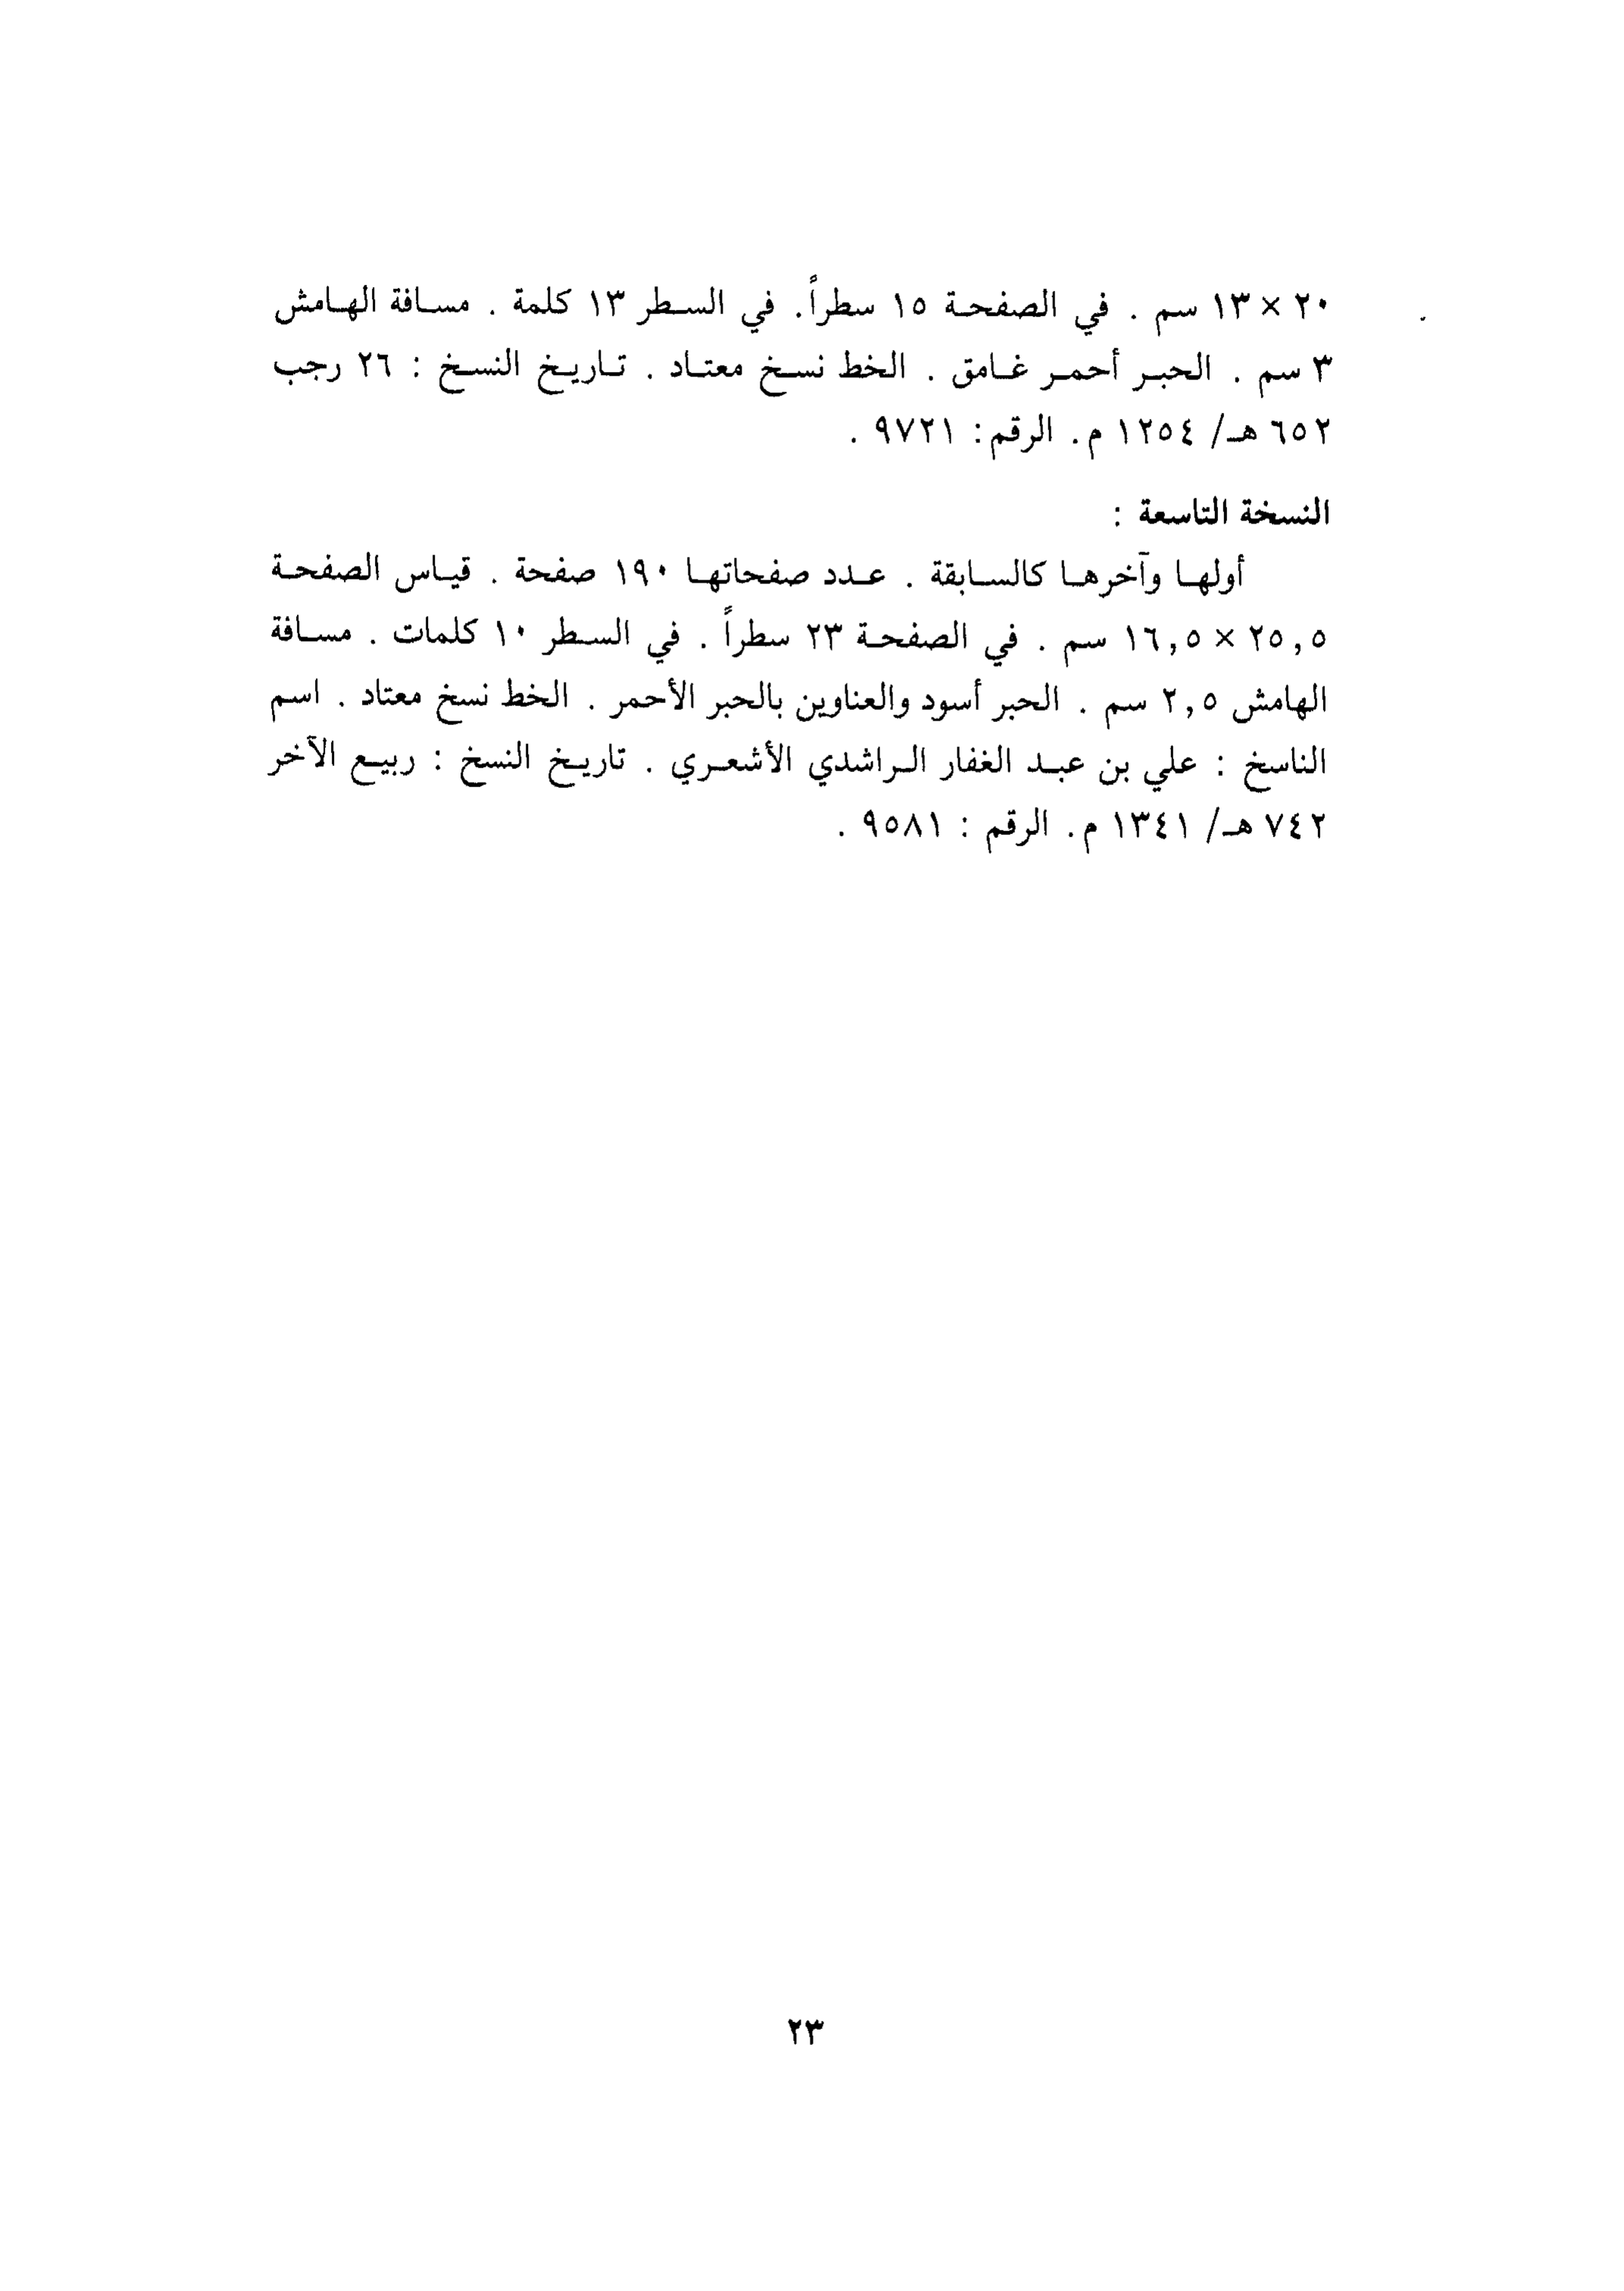 ٢٠ × ١٣ سم . في الصفحة ١٥ سطراً. في السطر ١٣ كلمة . مسافة الهامش
٣ سم . الحبر أحمر غامق . الخط نسخ معتاد . تاريخ النسخ : ٢٦ رجب
٦٥٢ هـ/ ١٢٥٤ م. الرقم: ٩٧٢١ .
النسخة التاسعة :
أولها وآخرها كالسابقة . عدد صفحاتها ١٩٠ صفحة . قياس الصفحة
٢٥,٥ × ١٦,٥ سم . في الصفحة ٢٣ سطراً . في السطر ١٠ كلمات . مسافة
الهامش ٢,٥ سم . الحبر أسود والعناوين بالحبر الأحمر . الخط نسخ معتاد . اسم
الناسخ : علي بن عبد الغفار الراشدي الأشعري . تاريخ النسخ : ربيع الآخر
٧٤٢ هـ/ ١٣٤١ م. الرقم : ٩٥٨١ .
٢٣